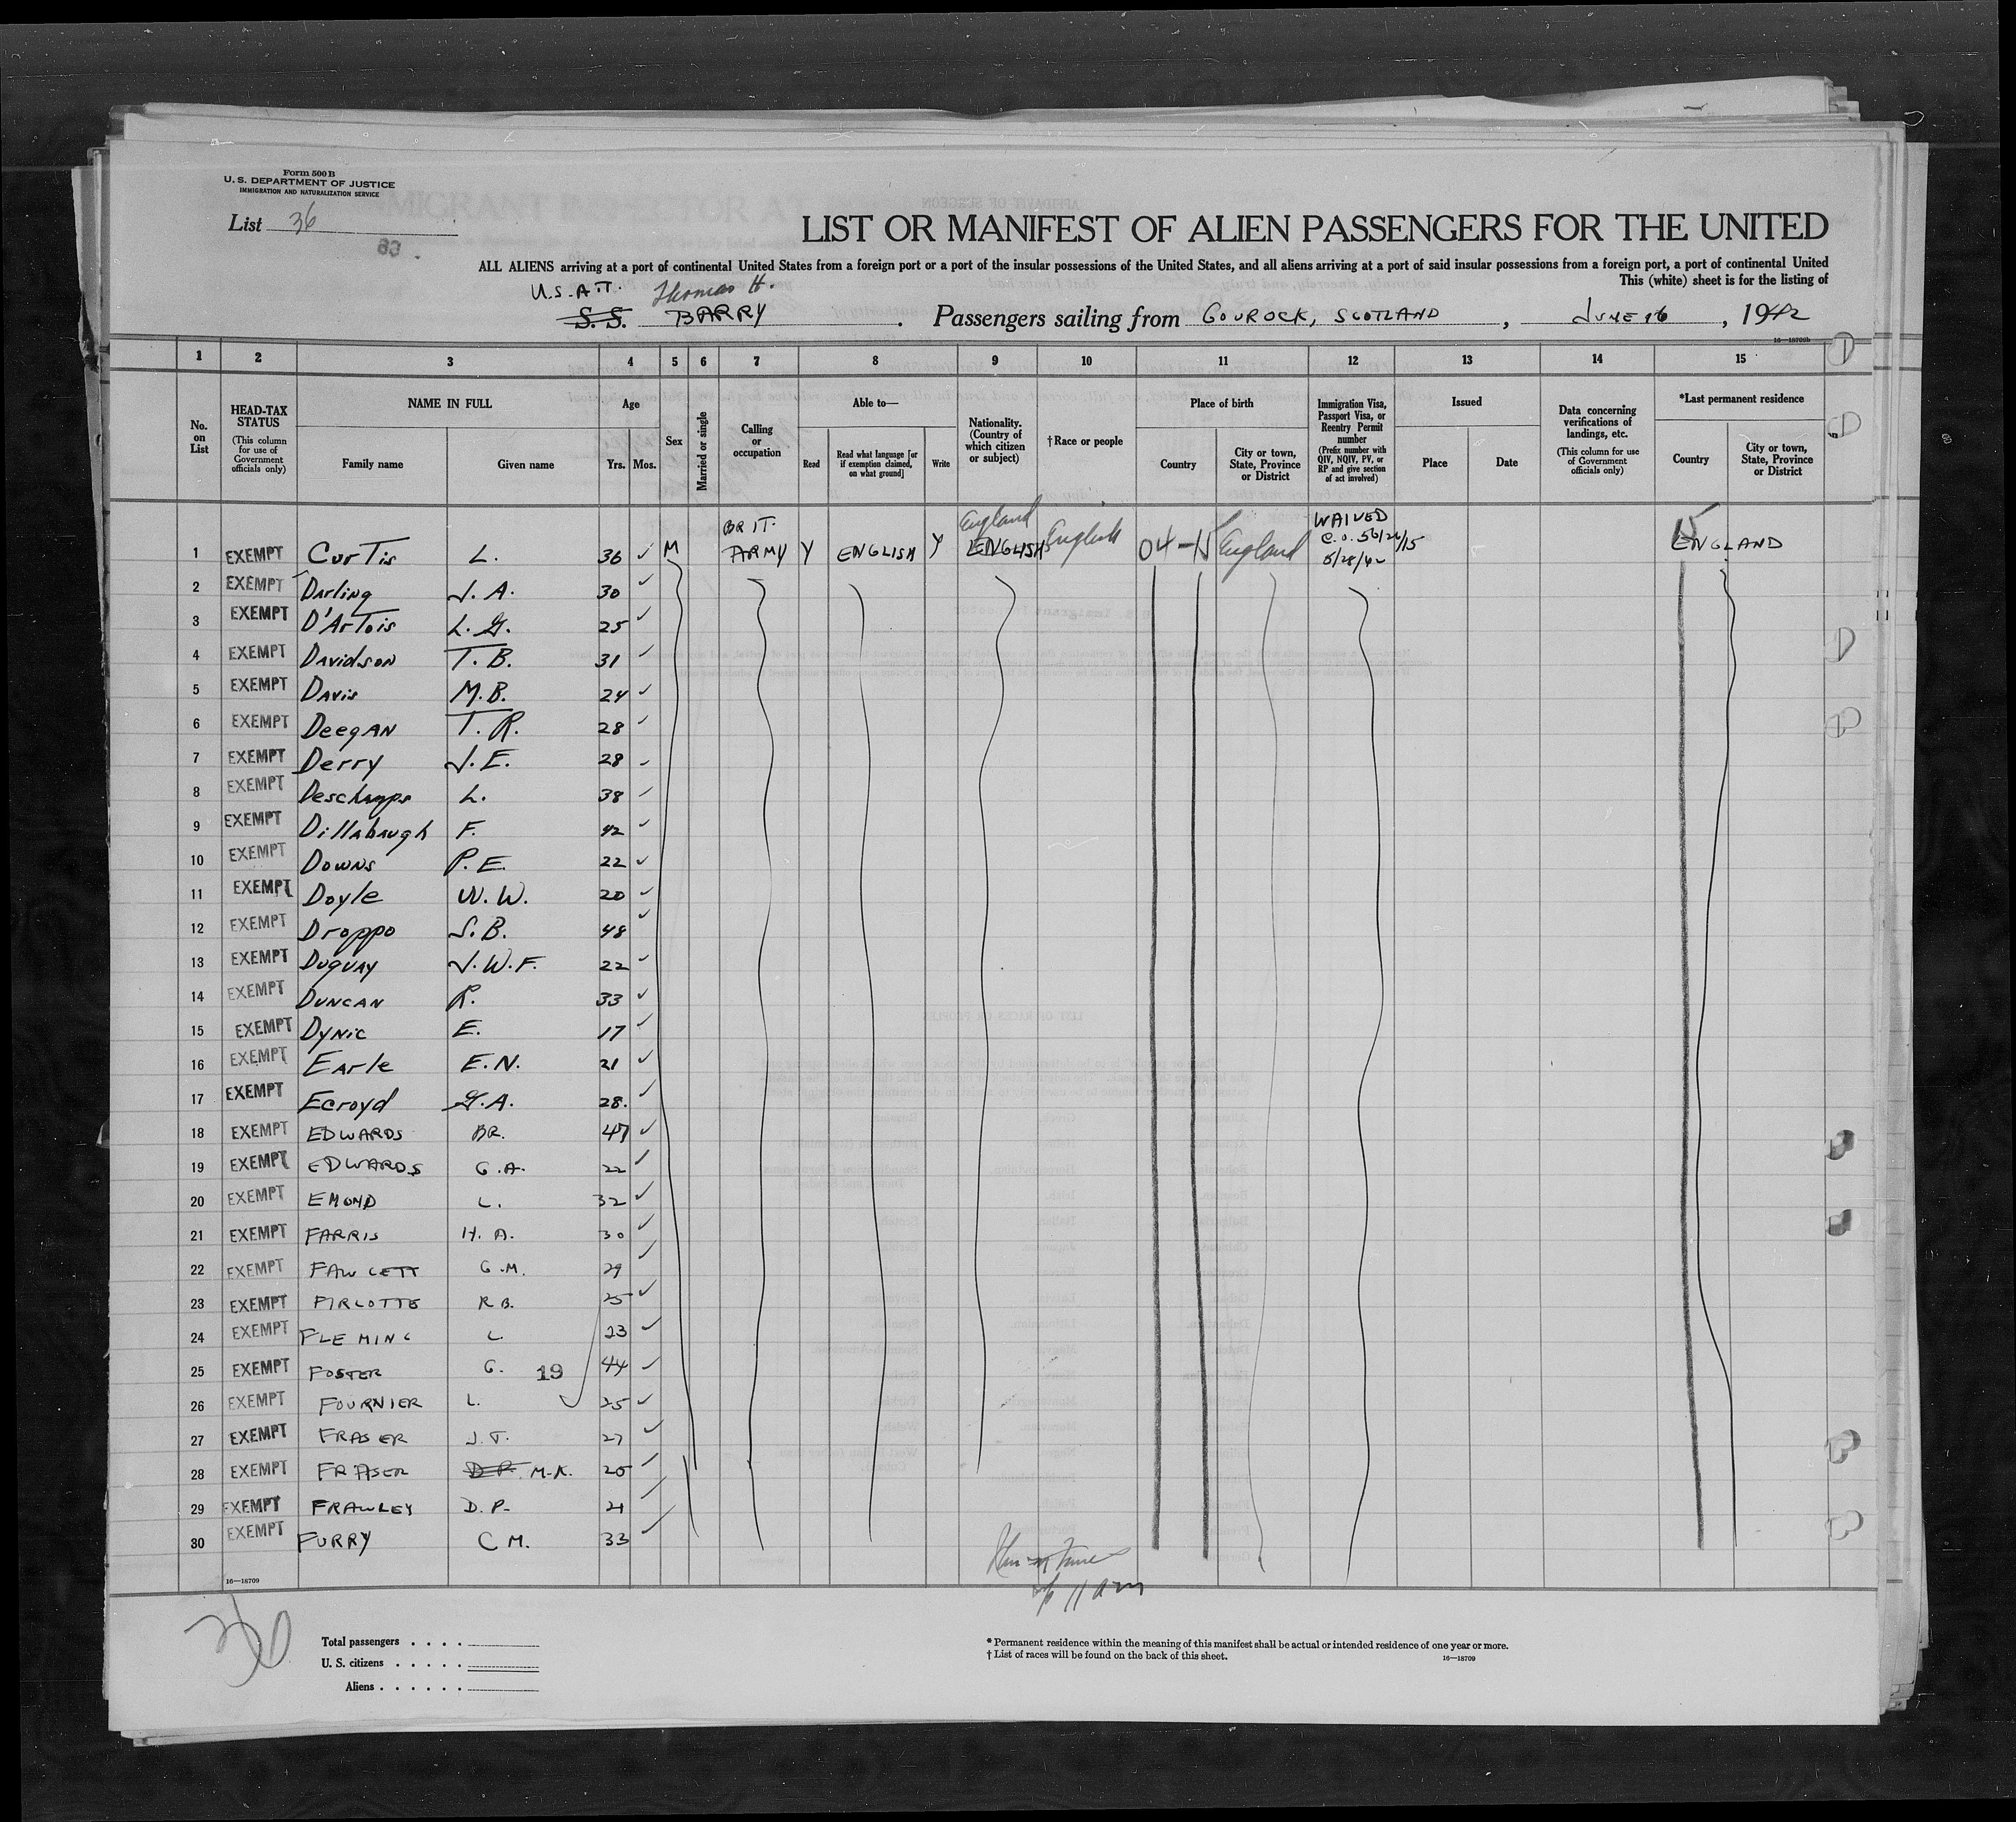 Form 500 B
U. S. DEPARTMENT OF JUSTICE
IMMIGRATION AND NATURALIZATION SERVICE
List 36
83
LIST OR MANIFEST OF ALIEN PASSENGERS FOR THE UNITED
ALL ALIENS arriving at a port of continental United States from a foreign port or a port of the insular possessions of the United States, and all aliens arriving at a port of said insular possessions from a foreign port, a port of continental United
This (white) sheet is for the listing of
U.S.A.T. Thomas H.
S. S. BARRY . Passengers sailing from GOUROCK, SCOTLAND , JUNE 16 , 1942
16—18709b
1 2 3 4 5 6 7 8 9 10 11 12 13 14 15
No. on List
HEAD-TAX STATUS
(This column for use of Government officials only)
NAME IN FULL
Family name
Given name
Age
Yrs.
Mos.
Sex
Married or single
Calling or occupation
Able to—
Read
Read what language [or if exemption claimed, on what ground]
Write
Nationality. (Country of which citizen or subject)
†Race or people
Place of birth
Country
City or town, State, Province or District
Immigration Visa, Passport Visa, or Reentry Permit number
(Prefix number with QIV, NQIV, PV, or RP and give section of act involved)
Issued
Place
Date
Data concerning verifications of landings, etc.
(This column for use of Government officials only)
*Last permanent residence
Country
City or town, State, Province or District
1 EXEMPT Curtis L. 36 ✓ M BRIT. ARMY Y ENGLISH Y England ENGLISH English 04-15 England WAIVED C.O. 56/26/15 5/28/42 15 ENGLAND
2 EXEMPT Darling J. A. 30 ✓
3 EXEMPT D'Artois L. G. 25 ✓
4 EXEMPT Davidson T. B. 31 ✓
5 EXEMPT Davis M. B. 24 ✓
6 EXEMPT Deegan T. R. 28 ✓
7 EXEMPT Derry J. E. 28 ✓
8 EXEMPT Deschamps L. 38 ✓
9 EXEMPT Dillabaugh F. 42 ✓
10 EXEMPT Downs P. E. 22 ✓
11 EXEMPT Doyle W. W. 20 ✓
12 EXEMPT Droppo S. B. 48 ✓
13 EXEMPT Duquay J. W. F. 22 ✓
14 EXEMPT Duncan R. 33 ✓
15 EXEMPT Dynic E. 17 ✓
16 EXEMPT Earle E. N. 21 ✓
17 EXEMPT Ecroyd G. A. 28. ✓
18 EXEMPT EDWARDS BR. 47 ✓
19 EXEMPT EDWARDS G. A. 22 ✓
20 EXEMPT EMOND L. 32 ✓
21 EXEMPT FARRIS H. A. 30 ✓
22 EXEMPT FAWCETT G. M. 29 ✓
23 EXEMPT FIRLOTTE R B. 25 ✓
24 EXEMPT FLEMING L. 23 ✓
25 EXEMPT FOSTER G. 19 44 ✓
26 EXEMPT FOURNIER L. ✓ 25 ✓
27 EXEMPT FRASER J. T. 27 ✓
28 EXEMPT FRASER D. P. M. K. 25 ✓
29 EXEMPT FRAWLEY D. P. 21 ✓
30 EXEMPT FURRY C M. 33 ✓
11 am
16—18709
30
Total passengers . . . .
U. S. citizens . . . . .
Aliens . . . . . .
* Permanent residence within the meaning of this manifest shall be actual or intended residence of one year or more.
† List of races will be found on the back of this sheet.
16—18709